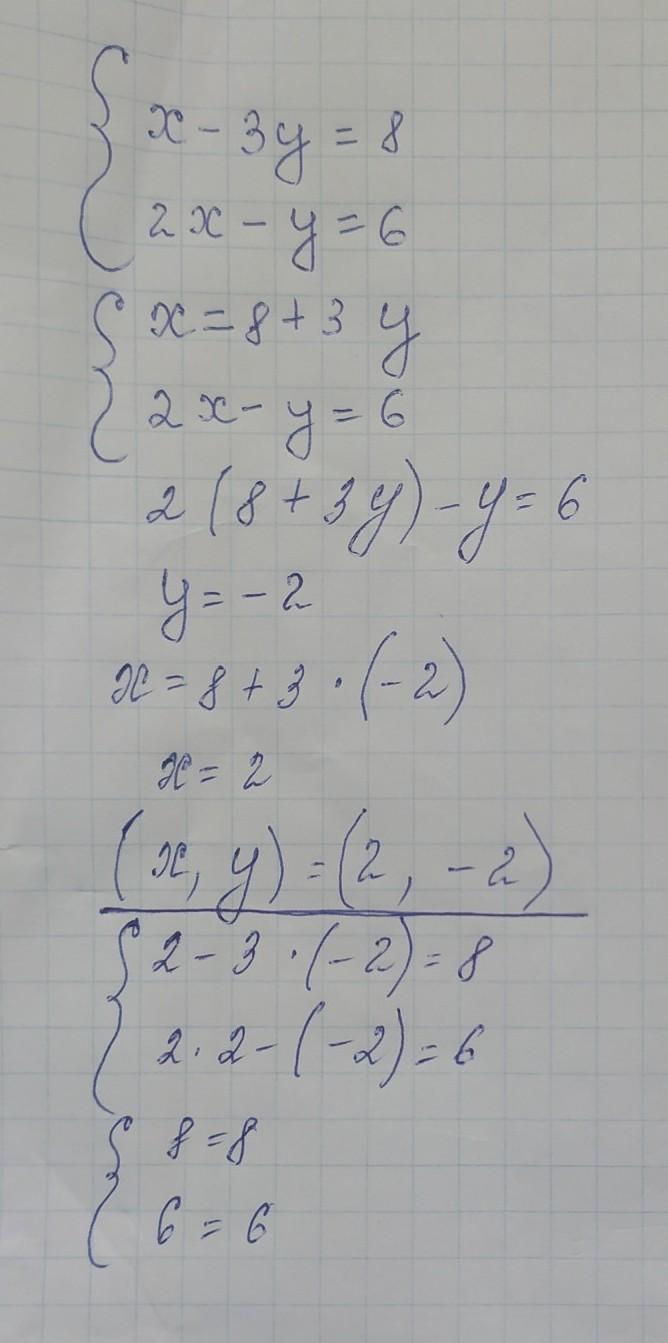 x - 3y = 8
2x - y = 6
x = 8 + 3 y
2x - y = 6
2 (8 + 3y) - y = 6
y = - 2
x = 8 + 3 · (-2)
x = 2
(x, y) = (2, -2)
2 - 3 · (-2) = 8
2 · 2 - (-2) = 6
8 = 8
6 = 6